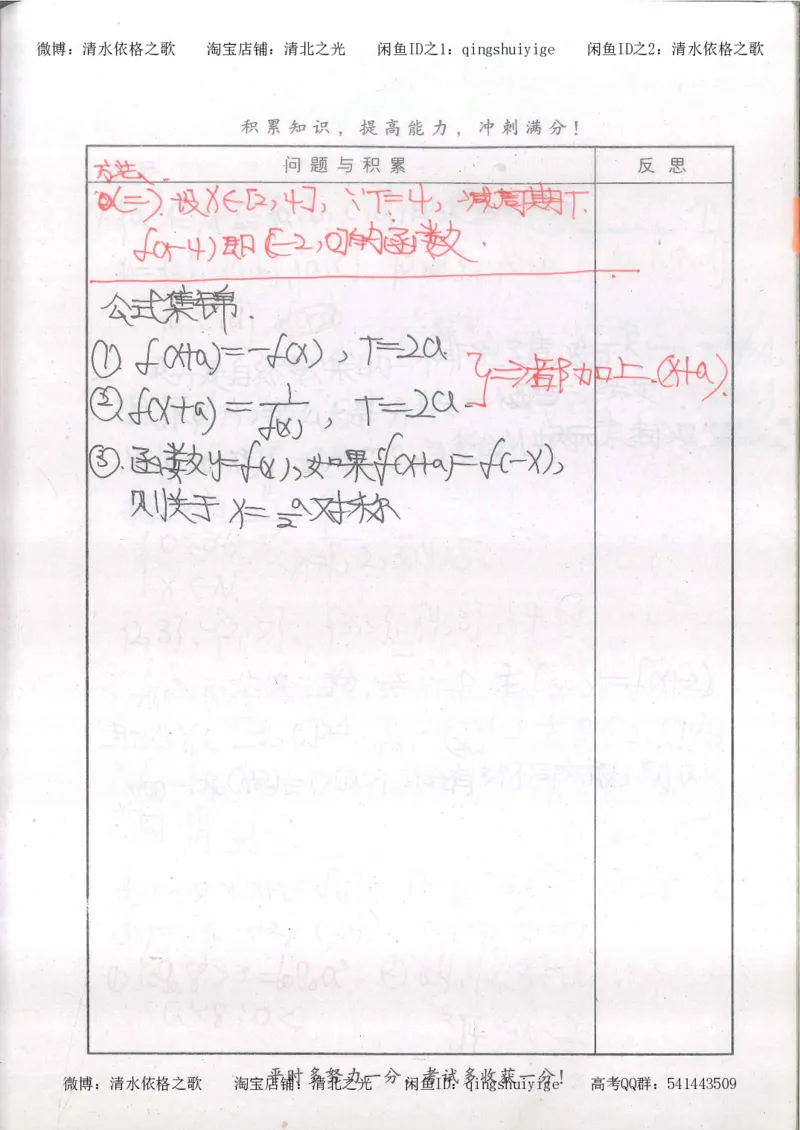 微博：清水依格之歌 淘宝店铺：清北之光 闲鱼ID之1：qingshuiyige 闲鱼ID之2：清水依格之歌
积累知识，提高能力，冲刺满分！
问题与积累 反思
方法、
(二).设X∈[2,4]，∵T=4，减周期T.
f(x-4)即[-2,0]的函数.
公式集锦.
① f(x+a)=-f(x)，T=2a.
② f(x+a)=1/f(x)，T=2a.
}⇒都加上(x+a).
③.函数y=f(x)，如果f(x+a)=f(-x)，
则关于x=a/2对称
平时多努力一分，考试多收获一分！
微博：清水依格之歌 淘宝店铺：清北之光 闲鱼ID之1：qingshuiyige 高考QQ群：541443509